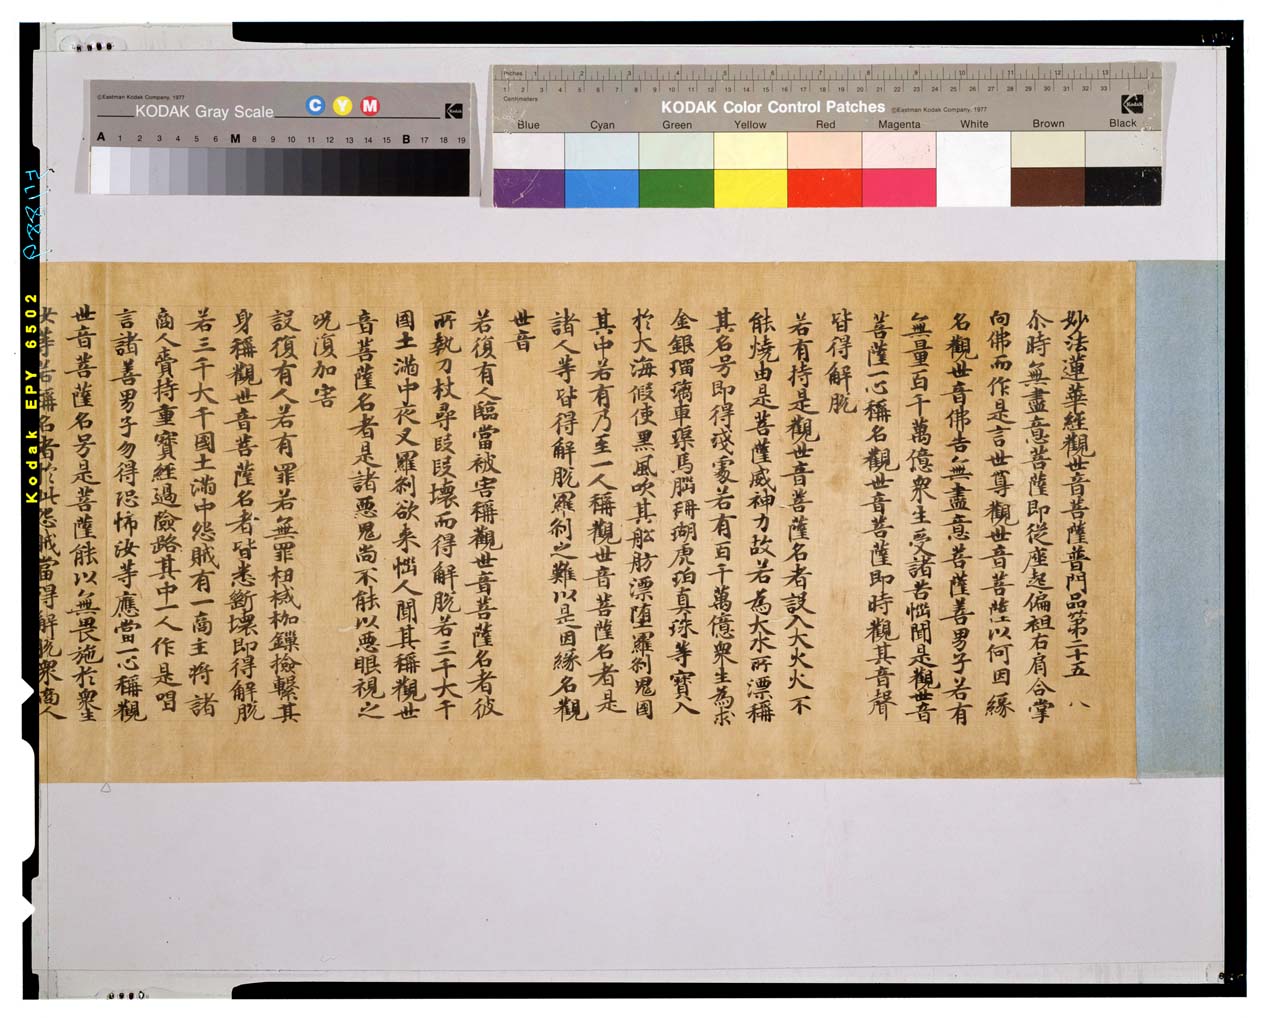 ©Eastman Kodak Company, 1977
KODAK Gray Scale
C Y M
Kodak
A 1 2 3 4 5 6 M 8 9 10 11 12 13 14 15 B 17 18 19
Inches 1 2 3 4 5 6 7 8 9 10 11 12 13
1 2 3 4 5 6 7 8 9 10 11 12 13 14 15 16 17 18 19 20 21 22 23 24 25 26 27 28 29 30 31 32 33
Centimetres
KODAK Color Control Patches ©Eastman Kodak Company, 1977
Kodak
Blue Cyan Green Yellow Red Magenta White Brown Black
妙法蓮華経觀世音菩薩普門品第二十五 八
尒時無盡意菩薩即從座起偏袒右肩合掌
向佛而作是言世尊觀世音菩薩以何因緣
名觀世音佛告無盡意菩薩善男子若有
無量百千萬億衆生受諸苦惱聞是觀世音
菩薩一心稱名觀世音菩薩即時觀其音聲
皆得解脫
若有持是觀世音菩薩名者設入大火火不
能燒由是菩薩威神力故若為大水所漂稱
其名号即得淺處若有百千萬億衆生為求
金銀瑠璃車璖馬腦珊瑚虎珀真珠等寶入
於大海假使黑風吹其舩舫漂墮羅剎鬼國
其中若有乃至一人稱觀世音菩薩名者是
諸人等皆得解脫羅剎之難以是因緣名觀
世音
若復有人臨當被害稱觀世音菩薩名者彼
所執刀杖尋段段壞而得解脫若三千大千
國土滿中夜叉羅剎欲來惱人聞其稱觀世
音菩薩名者是諸惡鬼尚不能以惡眼視之
況復加害
設復有人若有罪若無罪杻械枷鏁撿繫其
身稱觀世音菩薩名者皆悉斷壞即得解脫
若三千大千國土滿中怨賊有一商主將諸
商人賫持重寶經過險路其中一人作是唱
言諸善男子勿得恐怖汝等應當一心稱觀
世音菩薩名号是菩薩能以無畏施於衆生
汝等若稱名者於此怨賊當得解脫衆商人
Kodak EPY 6502